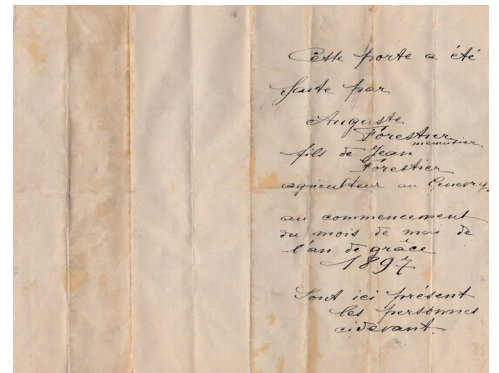 Cette porte a été
faite par
Auguste
Forestier
menuisier
fils de Jean
Forestier
agriculteur au
au commencement
du mois de mai de
l'an de grâce
1897
Sont ici présent
les personnes
cidevant.